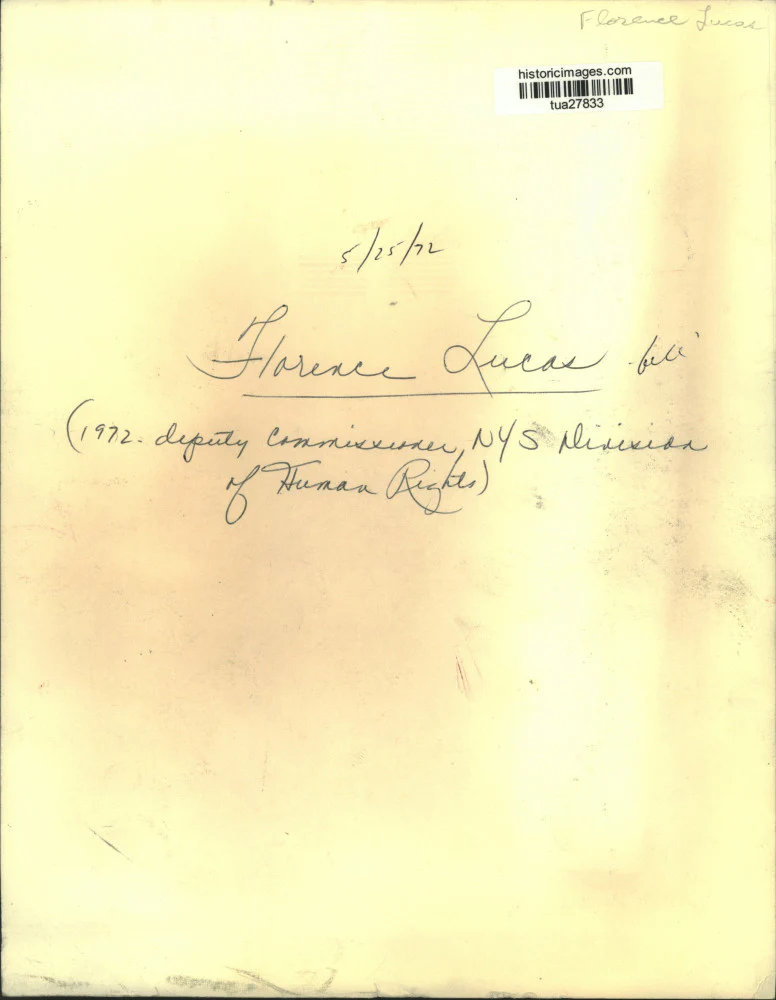 Florence Lucas
historicimages.com
tua27833
5/25/72
Florence Lucas
(1972- deputy Commissioner, NYS Division
of Human Rights)